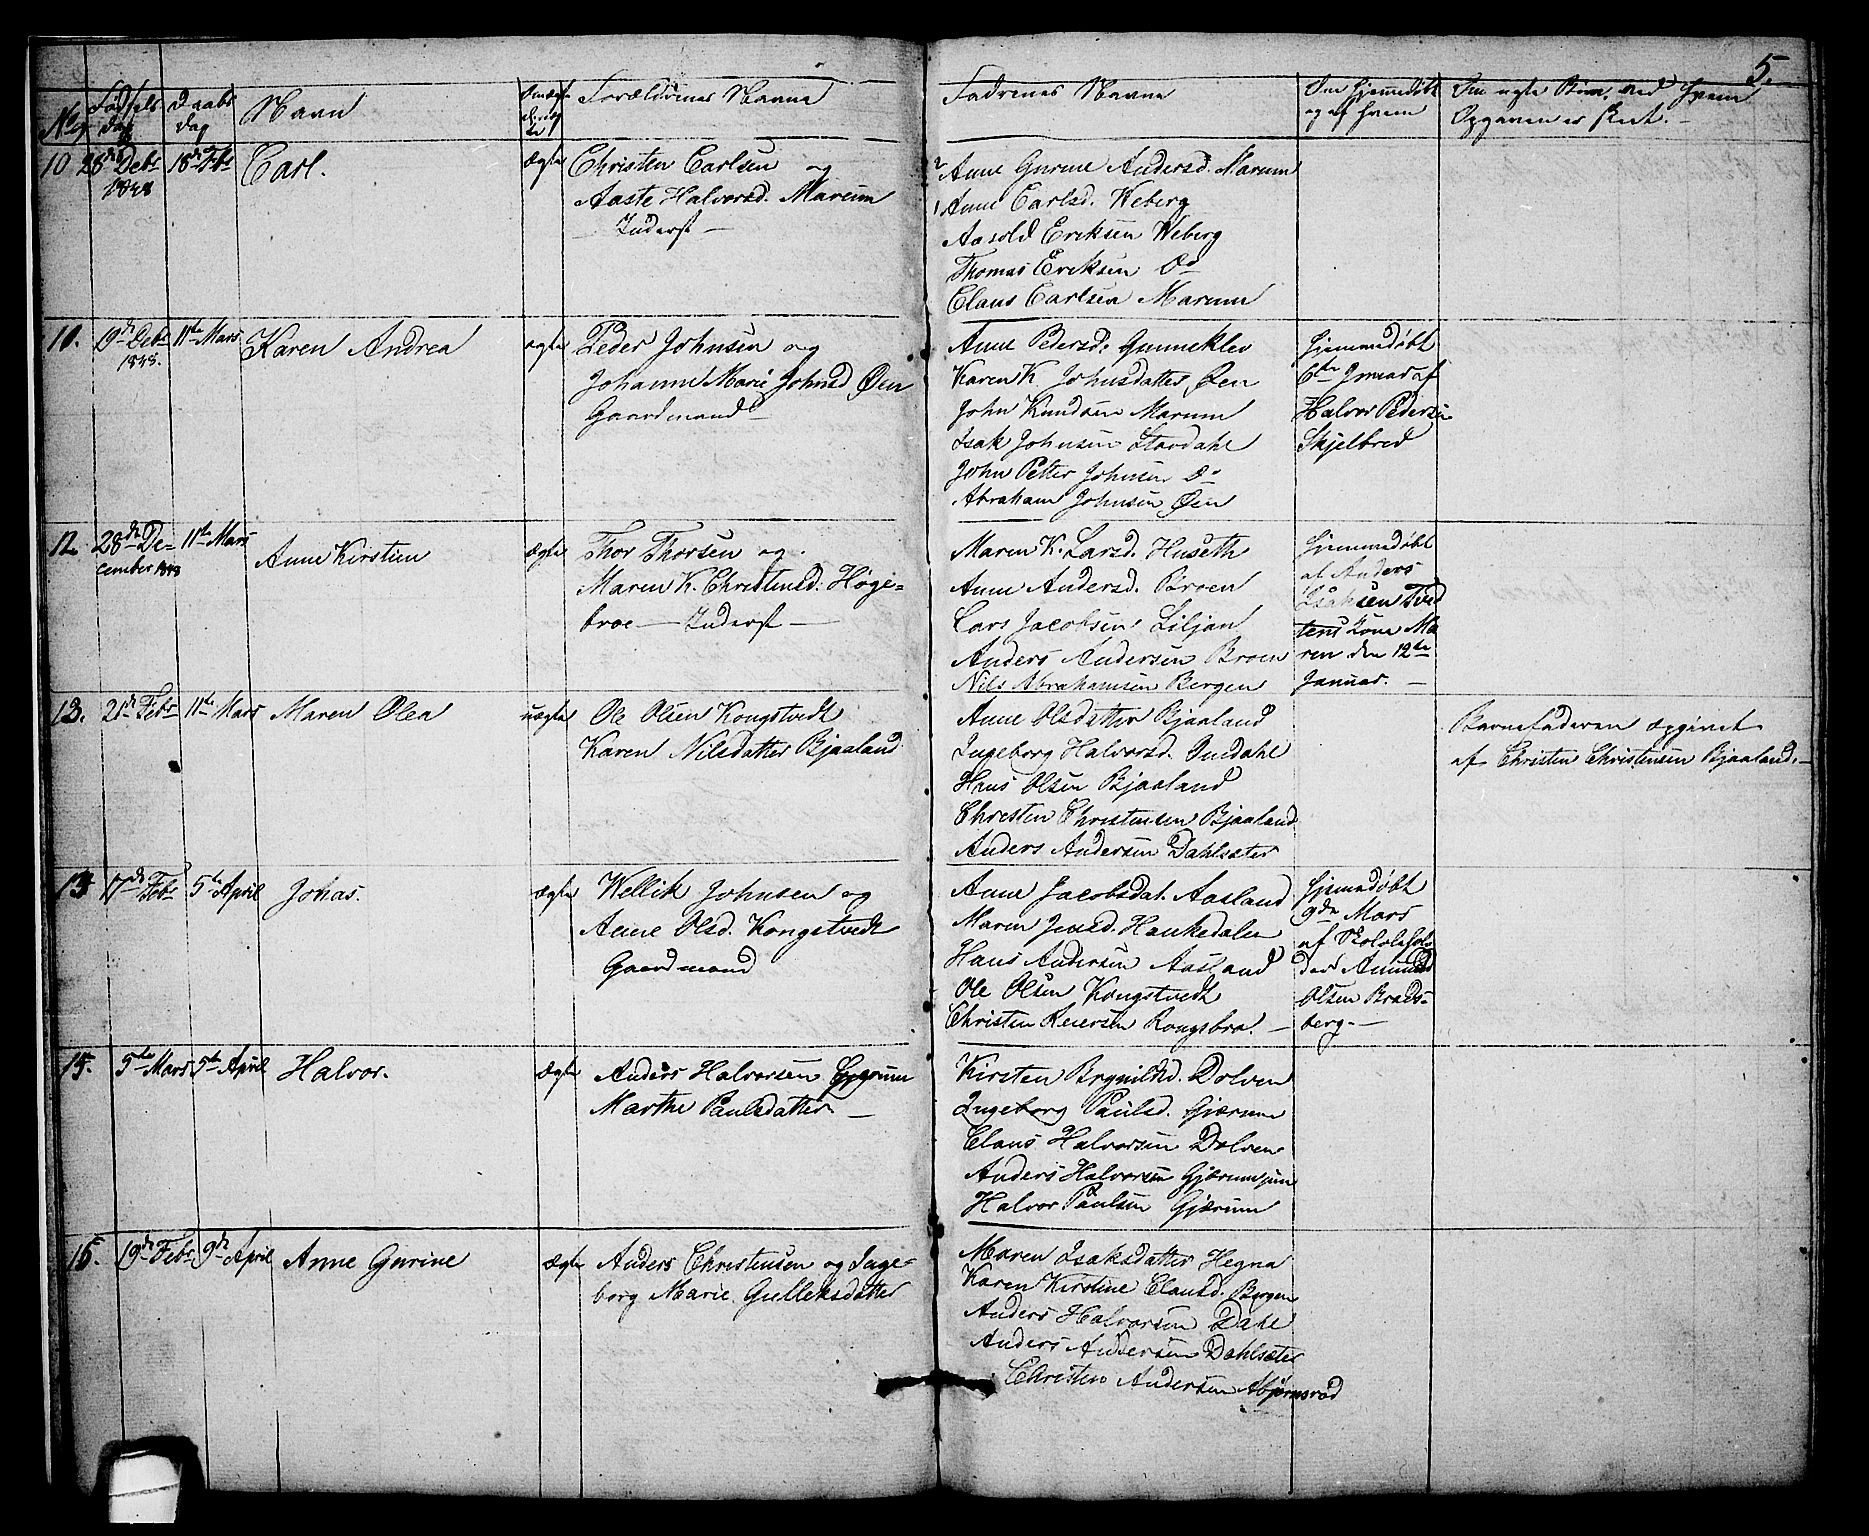 5.
No
Fødsels
dag
Daabs
dag
Navn
Forældrenes Navne
Fadrenes Navne
Om hjemmedøbt
og af hvem
Om uægte Børn, ved hvem
Opgaven er skeet. -
10 28de Debr 1848 18de Fbr Carl. ægte
Christen Carlsen og
Aaste Halvorsd. Marum
- Inderst -
2 Anne Gurine Andersd. Marum
1 Anne Carlsd. Weberg
Aasold Eriksen Weberg
Thomas Eriksen Do
Claus Carlsen Marum
10. 19de Debr 1848. 11te Mars Karen Andrea ægte
Peder Johnsen og
Johanne Marie Johnsd Øen
Gaardmand -
Anne Pedersd. Gunneklev
Karen K. Johnsdatter Øen
John Knudsen Marum
Isak Johnsen Stordahl
John Petter Johnsen Do
Abraham Johnsen Øen
Hjemmedøbt
6te Januar af
Halvor Pedersen
Skjelbred
12. 28de December 1848 11te Mars Anne Kirstine ægte
Thor Thorsen og
Maren K. Christensd. Høge-
broe - Inderst -
Maren K. Larsd. Huseth
Anne Andersd. Broen
Lars Jacobsen Liljan
Anders Andersen Broen
Nils Abrahamsen Bergen
Hjemmedøbt
af Anders
Isaksen Tved
tens Kone Ma
ren den 12te
Januar. -
13. 21de Febr 11te Mars Maren Olea uægte
Ole Olsen Kongstvedt
Karen Nilsdatter Bjaaland
Anne Olsdatter Bjaaland
Ingeborg Halvorsd. Indahl
Hans Olsen Bjaaland
Christen Christensen Bjaaland
Anders Andersen Dahlsæter
Barnefaderen opgivet
af Christen Christensen Bjaaland. -
13 17de Febr 5te April Johas. ægte
Wellik Johnsen og
Anne Olsd. Kongstvedt
Gaardmand
Anne Jacobsdat. Aasland
Maren Jensd. Haukedalen
Hans Andersen Aasland
Ole Olsen Kongstvedt
Christen Reiersen Rongsbra. -
Hjemmedøbt
9de Mars
af Skolehol-
der Amund
Olsen Brads-
berg. -
15. 5te Mars 5te April Halvor. ægte
Anders Halvorsen Gjærum
Marthe Paulsdatter. -
Kirsten Brynildsd. Dolven
Ingeborg Paulsd. Gjærum
Claus Halvorsen Dolven
Anders Halvorsen Gjærum jun
Halvor Paulsen Gjærum
16. 19de Febr. 9de April Anne Gurine ægte
Anders Christensen og Inge-
borg Marie Gulleksdatter
Maren Isaksdatter Hegna
Karen Kirstine Clausd. Bergen
Anders Halvorsen Dahl
Anders Andersen Dahlsæter
Christen Andersen Abjørnsrød